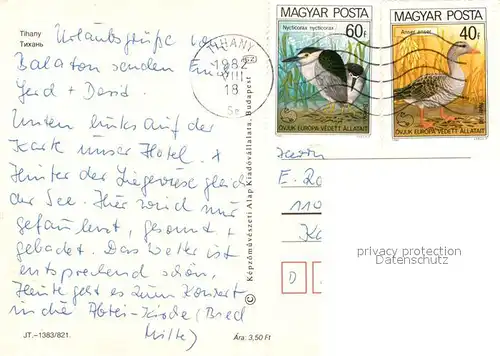 Tihany
Тихань
Urlaubsgrüße vom
Balaton senden Euch
Gerd + David.
Unten links auf der
Karte unser Hotel. +
Hinter der Liegewiese gleich
der See. Hier wird nur
gefaulenzt, gesonnt +
gebadet. Das Wetter ist
entsprechend schön,
Heute geht es zum Konzert
in die Abtei-Kirche (Bild
Mitte)
JT.–1383/821.
Ára: 3,50 Ft
© Képzőművészeti Alap Kiadóvállalata, Budapest
TIHANY
1982
VIII
18
MAGYAR POSTA
Nycticorax nycticorax
60f
ÓVJUK EURÓPA VÉDETT ÁLLATAIT
MAGYAR POSTA
Anser anser
40f
ÓVJUK EURÓPA VÉDETT ÁLLATAIT
Herrn
E. Ro
110
privacy protection
Datenschutz
D